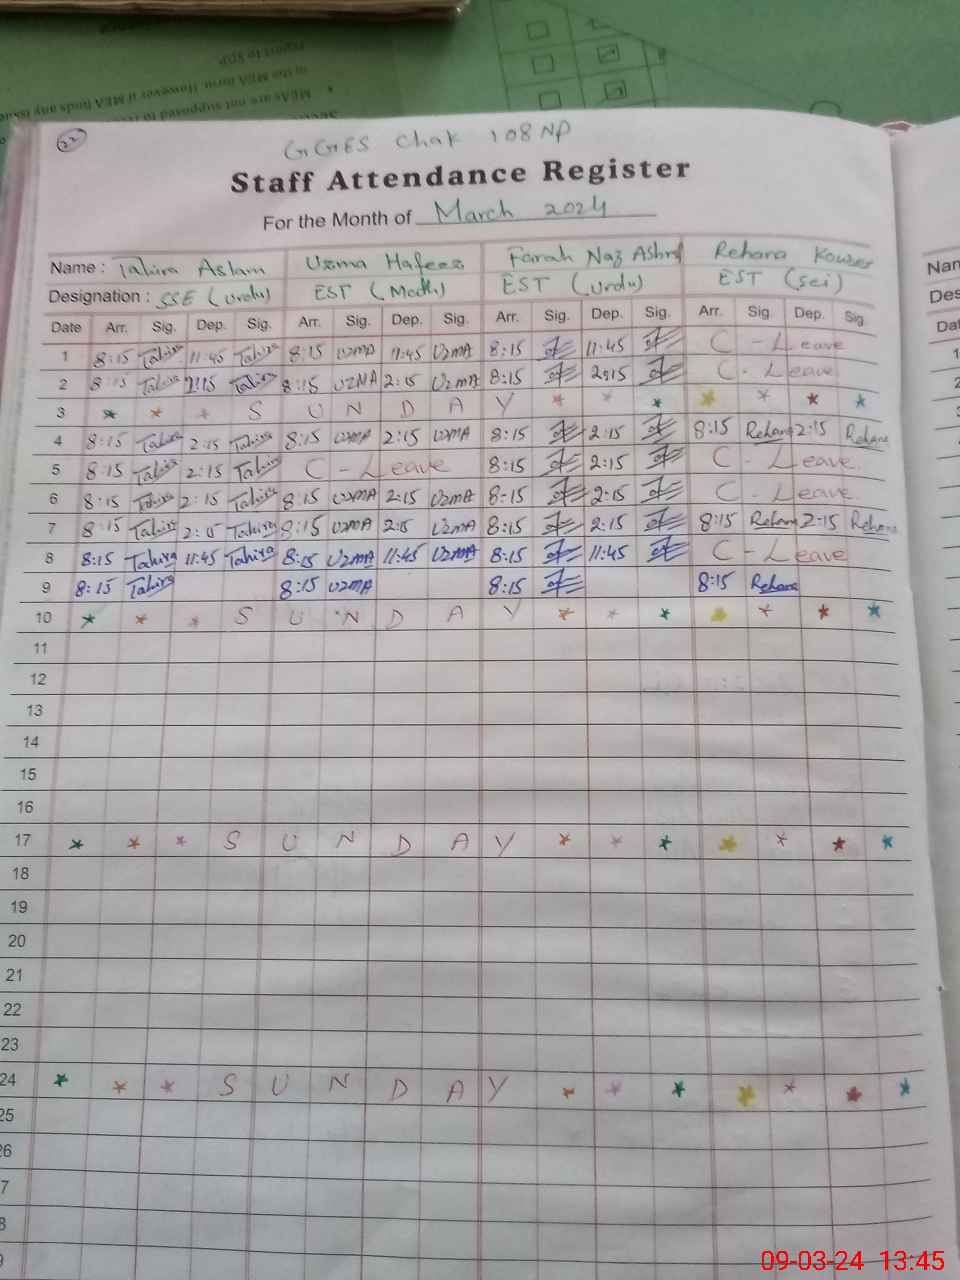 report to SDP
in the MEA form. However if MEA finds any issue
MEAs are not supposed to
22
GGES Chak 108 NP
Staff Attendance Register
For the Month of March 2024
Name : Tahira Aslam Uzma Hafeez Farah Naz Ashraf Rehana Kouser
Designation : SSE (Urdu) EST (Math) EST (Urdu) EST (Sci)
Date Arr. Sig. Dep. Sig. Arr. Sig. Dep. Sig. Arr. Sig. Dep. Sig. Arr. Sig. Dep. Sig.
1 8:15 Tahira 11:45 Tahira 8:15 UzmA 11:45 UzmA 8:15 11:45 C - Leave
2 8:15 Tahira 2:15 Tahira 8:15 UZMA 2:15 UzmA 8:15 2:15 C - Leave
3 S U N D A Y
4 8:15 Tahira 2:15 Tahira 8:15 UzmA 2:15 UzmA 8:15 2:15 8:15 Rehana 2:15 Rehana
5 8:15 Tahira 2:15 Tahira C - Leave 8:15 2:15 C - Leave.
6 8:15 Tahira 2:15 Tahira 8:15 UzmA 2:15 UzmA 8-15 2:15 C - Leave.
7 8:15 Tahira 2:15 Tahira 8:15 UzmA 2:15 UzmA 8:15 2:15 8:15 Rehana 2:15 Rehana
8 8:15 Tahira 11:45 Tahira 8:15 UzmA 11:45 UzmA 8:15 11:45 C - Leave
9 8:15 Tahira 8:15 UzmA 8:15 8:15 Rehana
10 S U N D A Y
11
12
13
14
15
16
17 S U N D A Y
18
19
20
21
22
23
24 S U N D A Y
25
26
7
8
9
Nam
Des
Dat
1
2
3
09-03-24 13:45